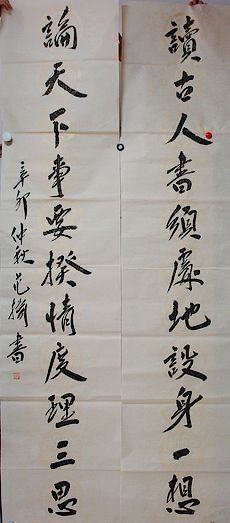 讀古人書須處地設身一想
論天下事要揆情度理三思
辛卯仲秋范書